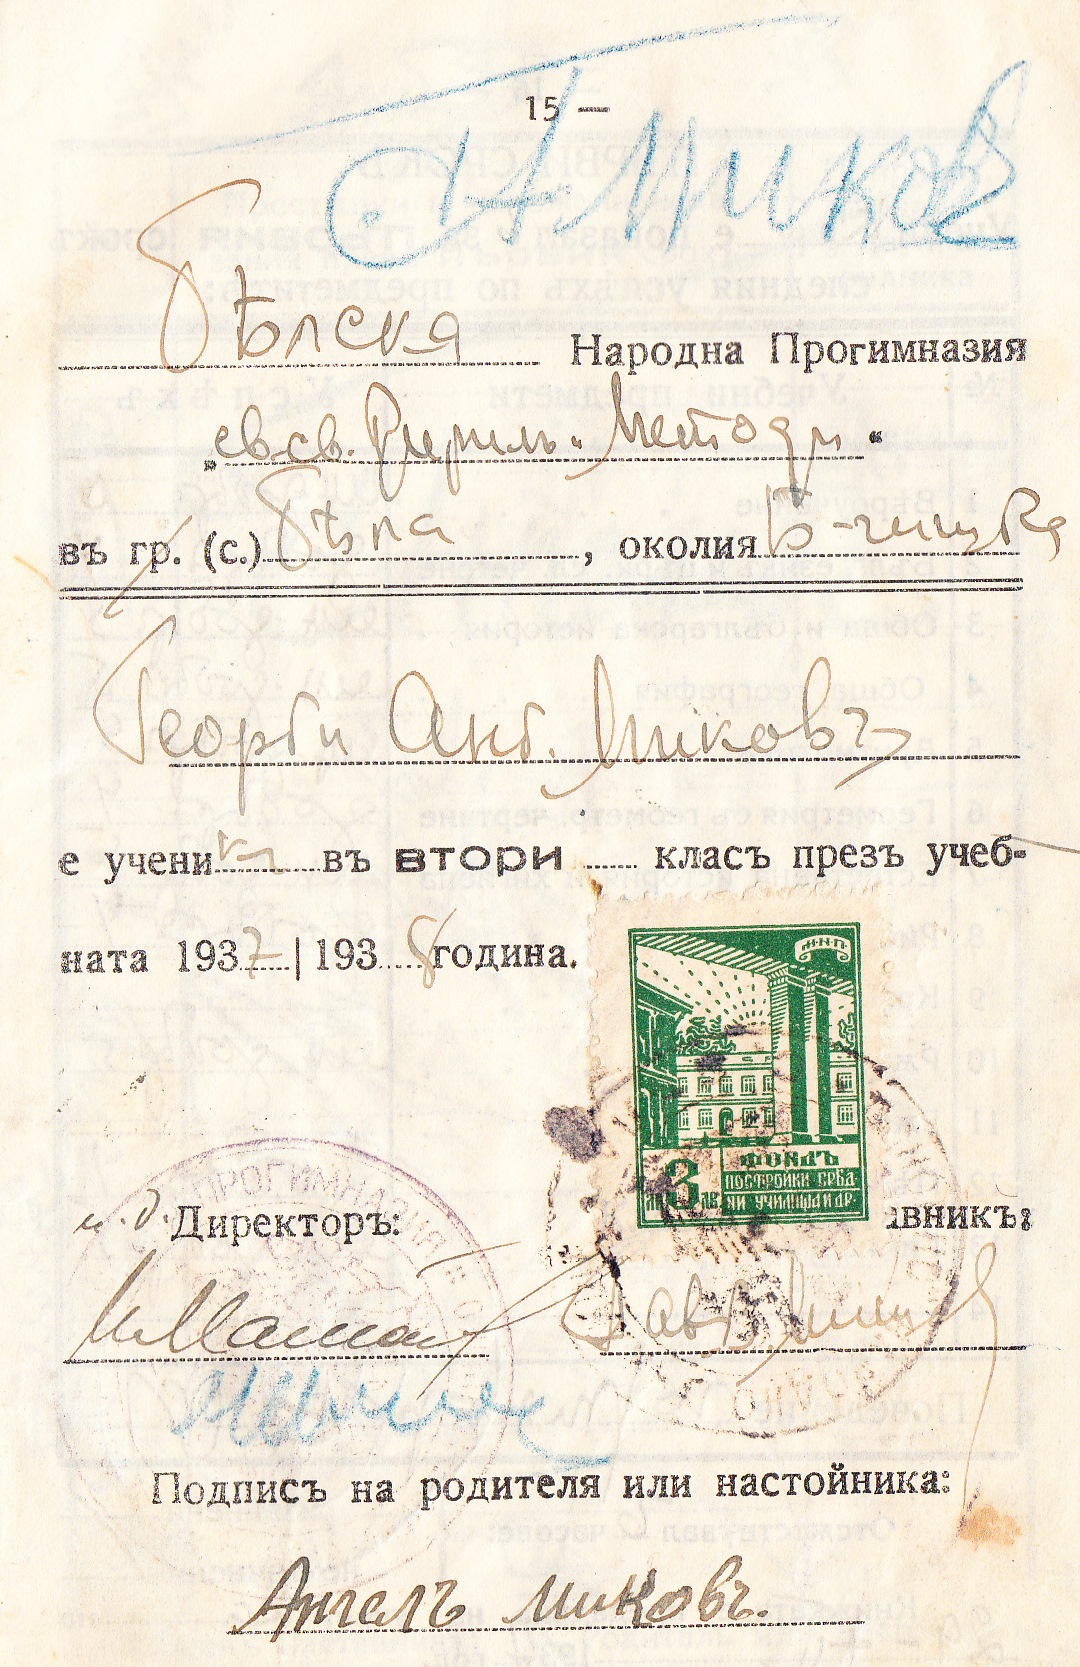 15 —
Г. А. Миковъ
Бѣлска Народна Прогимназия
„св. св. Кирилъ и Методи“
въ гр. (с.) Бѣла, околия
Георги Анг. Миковъ
е ученикъ въ ВТОРИ класъ презъ учеб-
ната 1937 | 1938 година.
Ж·Н·П·
3
лв лв
ФОНДЪ
ПОСТРОЙКИ СРѢД-
НИ УЧИЛИЩА И ДР.
ПРОГИМНАЗИЯ
и. д. Директоръ: авникъ:
Подписъ на родителя или настойника:
Ангелъ Миковъ.